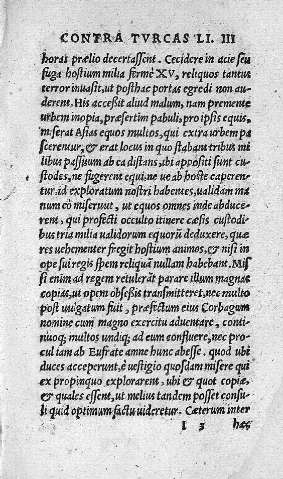 CONTRA TVRCAS LI. III
horas prælio decertassent. Cecidere in acie seu
fuga hostium milia fermè XV, reliquos tantus
terror inuasit, ut posthac portas egredi non au
derent. His accessit aliud malum, nam premente
urbem inopia, præsertim pabuli, pro ipsis equis,
miserat Asias equos multos, qui extra urbem pa
scerentur, & erat locus in quo stabant tribus mi
libus passuum ab ea distans, ibi appositi sunt cu-
stodes, ne fugerent equi, ne ue ab hoste caperen
tur. id exploratum nostri habentes, ualidam ma
num eò miserunt, ut equos omnes inde abduce
rent, qui profecti occulto itinere cæsis custodi
bus tria milia ualidorum equorũ deduxere, quæ
res uehementer fregit hostium animos, & nisi in
ope sui regis spem reliquã nullam habebant. Mis
si enim ad regem retulerãt parare illum magnas
copias, ut opem obsessis transmitteret, nec multo
post uulgatum fuit, præfectum eius Corbagam
nomine cum magno exercitu aduentare, conti,
nuoq; multos undiq; ad eum confluere, nec pro
cul tam ab Eufrate amne hunc abesse. quod ubi
duces acceperunt, è uestigio quosdam misere qui
ex propinquo explorarent, ubi & quot copiæ,
& quales essent, ut melius tandem posset consu-
li quid optimum factu uideretur. Cæterum inter
I 3 hæc